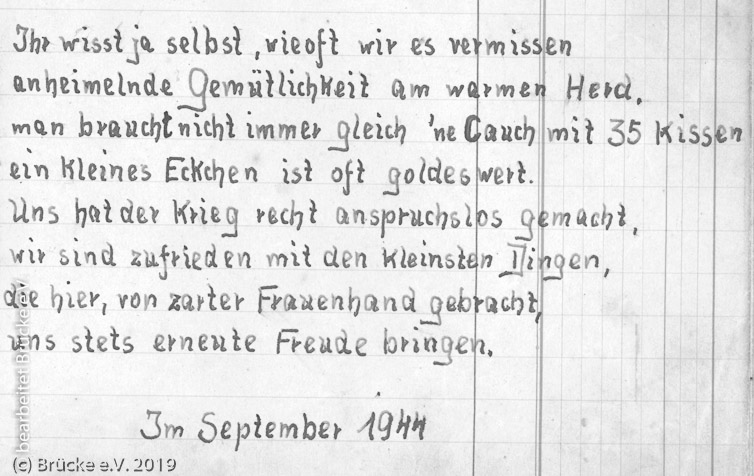 Ihr wisst ja selbst, wieoft wir es vermissen
anheimelnde Gemütlichkeit am warmen Herd,
man braucht nicht immer gleich 'ne Cauch mit 35 Kissen
ein kleines Eckchen ist oft goldeswert.
Uns hat der Krieg recht anspruchslos gemacht,
wir sind zufrieden mit den kleinsten Dingen,
die hier, von zarter Frauenhand gebracht,
uns stets erneute Freude bringen.
Im September 1944
bearbeitet Brücke e.V.
(c) Brücke e.V. 2019